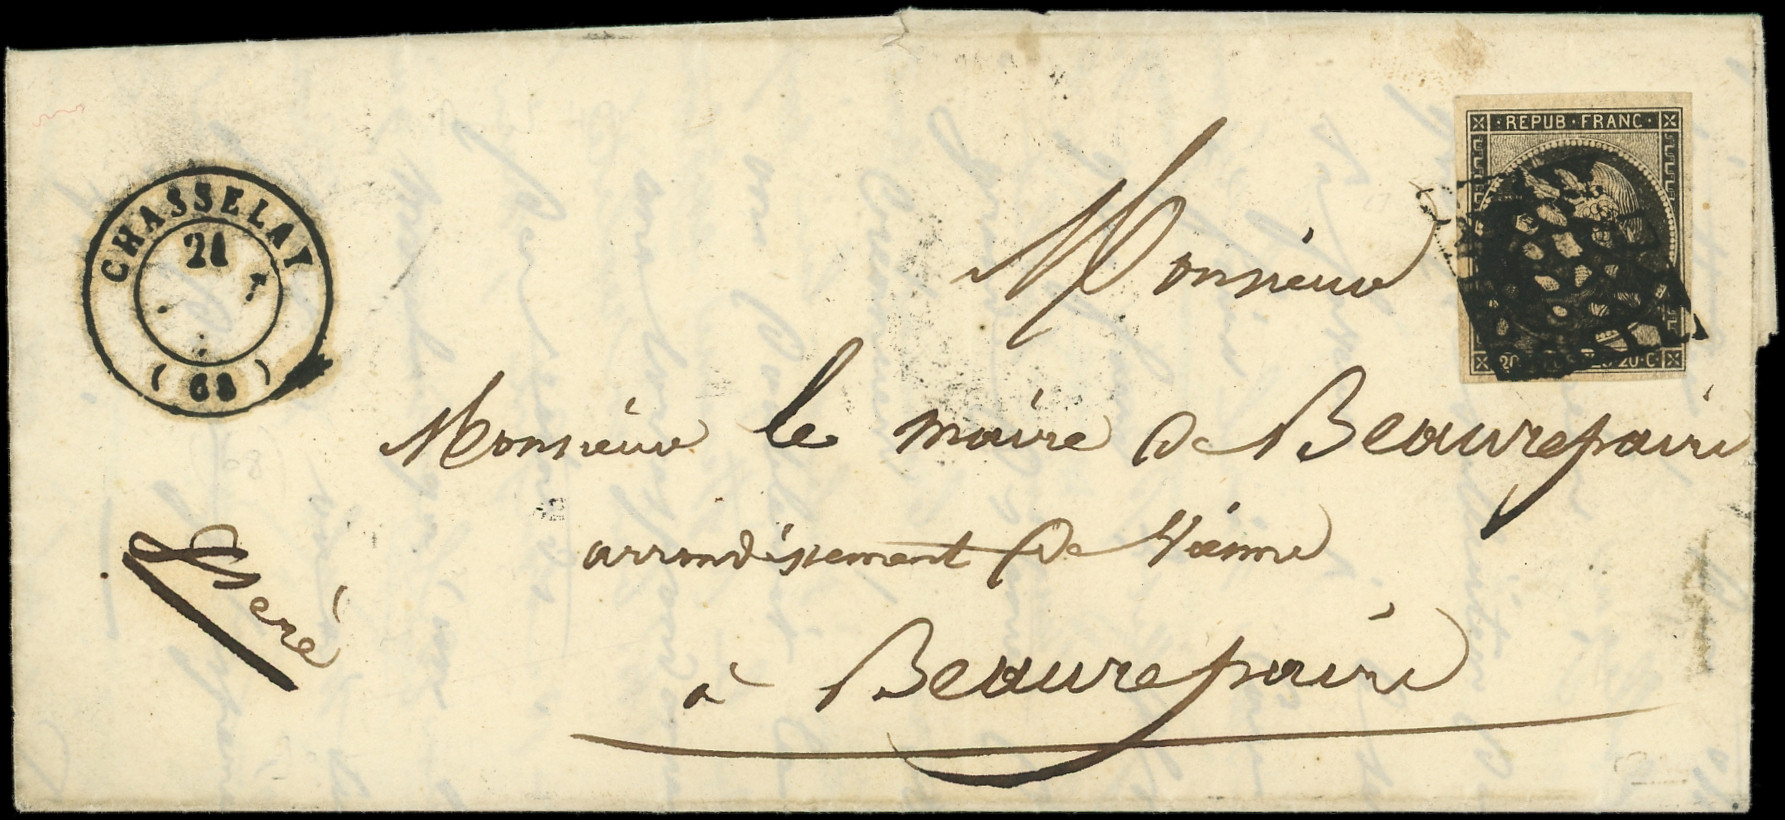 CHASSELAY
21
(68)
REPUB·FRANC·
20
20·C
Monsieur
Monsieur le maire de Beaurepaire
arrondissement de Vienne
à Beaurepaire